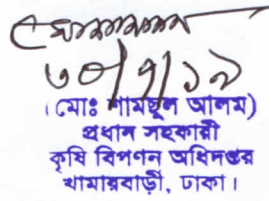 ৩০/৭/১৯
(মোঃ শামছুল আলম)
প্রধান সহকারী
কৃষি বিপণন অধিদপ্তর
খামারবাড়ী, ঢাকা।